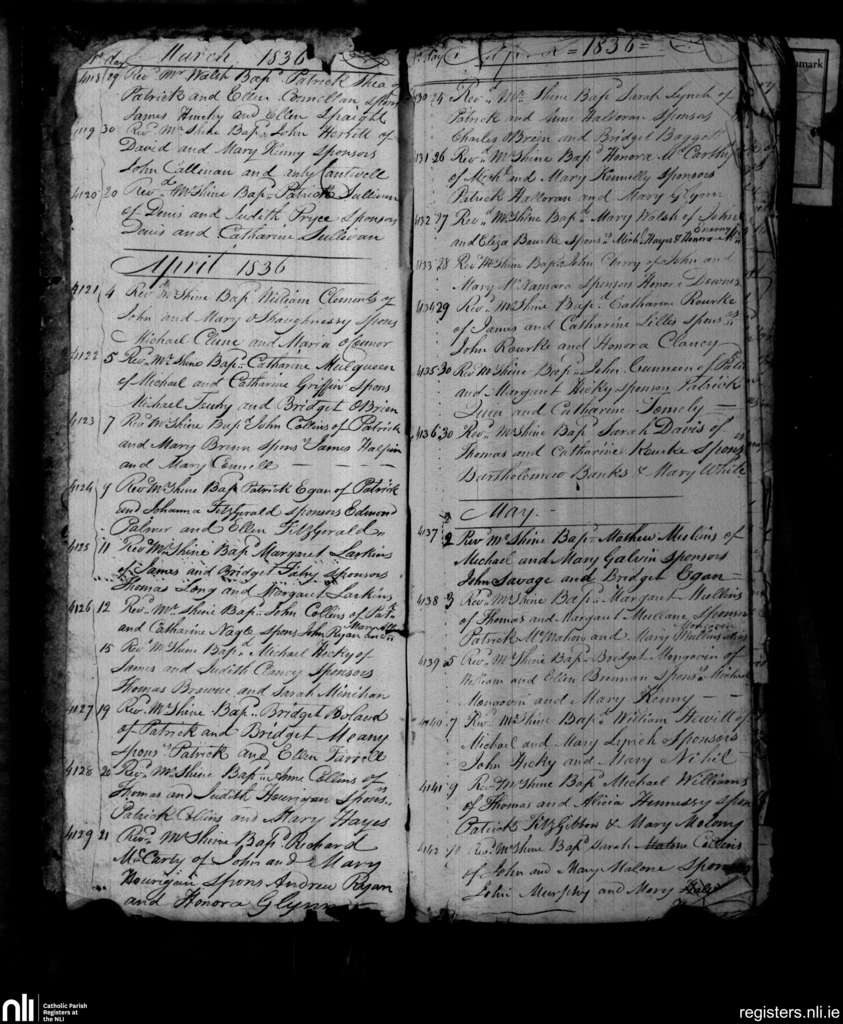 No day March, 1836
4118 29 Revd Mr Walsh Bapd Patrick Shea of
Patrick and Ellen Connellan spons
James Huechy and Ellen Speaight
4119 30 Revd Mr Shine Bapd John Herbitt of
David and Mary Kenny sponsors
John Callinan and Cantwell
4120 20 Revd Mr Shine Bapd Patrick Sullivan
of Denis and Judith Pryce sponsors
Denis and Catharine Sullivan
April 1836
4121 4 Revd Mr Shine Bapd William Clements of
John and Mary O Shaughnessy spons
Michael Clune and Maria O Connor
4122 5 Revd Mr Shine Bapd Catharine Mulqueen
of Michael and Catharine Griffin spons
Michael and Bridget O Brien
4123 7 Revd Mr Shine Bapd John Collins of Patrick
and Mary Breen spons James Halpin
and Mary Connell
4124 9 Revd Mr Shine Bapd Patrick Egan of Patrick
and Johanna Fitzgerald sponsors Edmond
Palmer and Ellen Fitzgerald
4125 11 Revd Mr Shine Bapd Margaret Larkins
of James and Bridget Fahy sponsors
Thomas Long and Margaret Larkins
4126 12 Revd Mr Shine Bapd John Collins of Patk
and Catharine Nagle spons John Ryan
15 Revd Mr Shine Bapd Michael Hickey of
James and Judith Clancy sponsors
Thomas Browne and Sarah Minihan
4127 19 Revd Mr Shine Bapd Bridget Boland
of Patrick and Bridget Meany
spons Patrick and Ellen Farrell
4128 20 Revd Mr Shine Bapd Anne Collins of
Thomas and Judith Hourigan Spons
Patrick Collins and Mary Hayes
4129 21 Revd Mr Shine Bapd Richard
McCarty of John and Mary
Hourigan Spons Andrew Ryan
and Honora Glynn
day April 1836
130 24 Revd Mr Shine Bapd Sarah Lynch of
Patrick and Anne Halloran sponsors
Charles O Brien and Bridget Baggott
131 26 Revd Mr Shine Bapd Honora McCarthy
of Michl and Mary Kennelly sponsors
Patrick Halloran and Mary Glynn
4132 27 Revd Mr Shine Bapd Mary Walsh of John
and Eliza Bourke spons Michl Hayes & Honora
4133 28 Revd Mr Shine Bapd John Curry of John and
Mary McNamara sponsors Honora Downes
4134 29 Revd Mr Shine Bapd Catharine Rourke
of James and Catharine Lillis spons
John Rourke and Honora Clancy
4135 30 Revd Mr Shine Bapd John Cunneen of
and Margaret Hicky sponsors Patrick
and Catharine
4136 30 Revd Mr Shine Bapd Sarah Davis of
Thomas and Catharine Rourke Spons
Bartholomew Banks & Mary White
May
4137 2 Revd Mr Shine Bapd Mathew Meelins of
Michael and Mary Galvin sponsors
John Savage and Bridget Egan
4138 3 Revd Mr Shine Bapd Margaret Mullins
of Thomas and Margaret Mullane sponsors
Patrick McMahon and Mary Mullins
4139 5 Revd Mr Shine Bapd Bridget Mongovin of
William and Ellen Brennan spons Michael
Mongovin and Mary Kenny
4140 7 Revd Mr Shine Bapd William Hewitt of
Michael and Mary Lynch sponsors
John Hicky and Mary Nihil
4141 9 Revd Mr Shine Bapd Michael Williams
of Thomas and Alicia Hennessy spon
Patrick Fitzgibbon & Mary Molony
4142 10 Revd Mr Shine Bapd Sarah Collins
of John and Mary Malone sponsors
John Murphy and Mary
mark
nli
Catholic Parish
Registers at
the NLI
registers.nli.ie